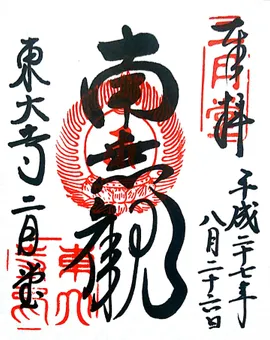 奉拝
平成二十七年
八月二十六日
南無観
東大寺 二月堂
二月堂